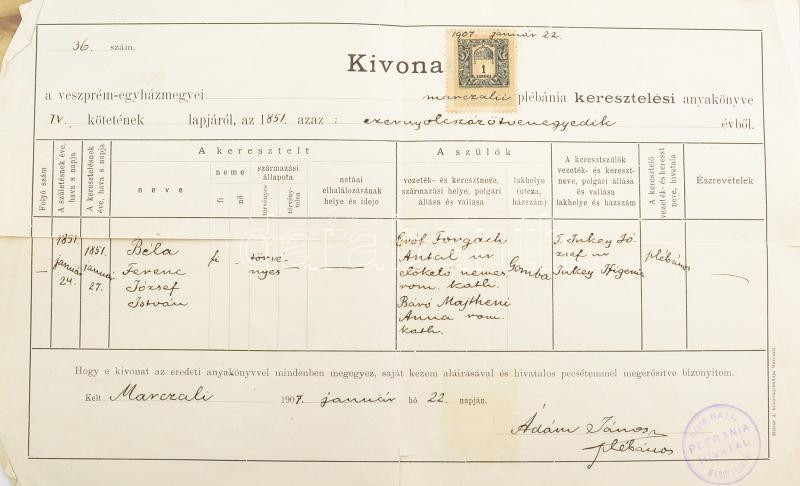 1907 január 22.
36. szám.
Kivona
1
KORONA
a veszprém-egyházmegyei marczalii plébánia keresztelési anyakönyve
IV. kötetének lapjáról, az 1851. azaz : ezernyolcszázötvenegyedik évből.
Folyó szám
A születésnek éve, hava s napja
A keresztelésnek éve, hava s napja
A keresztelt
neve
neme
fi
nő
származási állapota
törvényes
törvénytelen
netáni elhalálozásának helye és ideje
A szülők
vezeték- és keresztneve, származási helye, polgári állása és vallása
lakhelye (utcza, házszám)
A keresztszülők vezeték- és keresztneve, polgári állása és vallása lakhelye és házszám
A keresztelő vezeték- és kereszt neve, hivatala
Észrevételek
—
1851. január 24.
1851. január 27.
Béla
Ferenc
József
István
fi
-
törvényes
—
Gróf Forgách
Antal ur
előkelő nemes,
rom. kath.
Báró Majtheni
Anna rom.
kath.
Gomba
T. Inkey József ur
Inkey Ifigenia
plébános
Hogy e kivonat az eredeti anyakönyvvel mindenben megegyez, saját kezem aláirásával és hivatalos pecsétemmel megerősitve bizonyitom.
Kelt Marczali 1907. január hó 22. napján.
Ádám János
plébános
ROM. KATH.
PLÉBÁNIA
HIVATAL
MARCZALI
darabanth